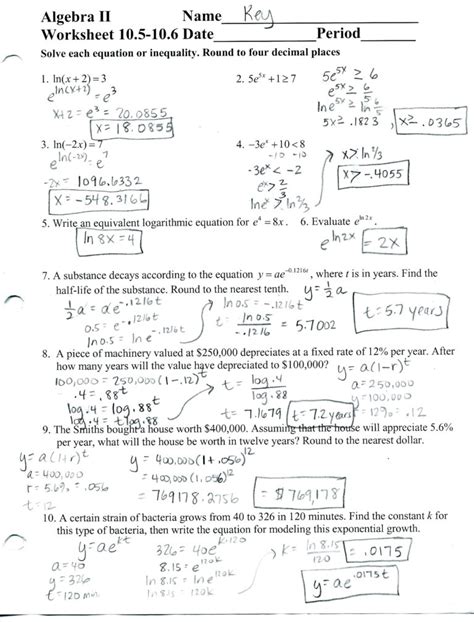 Algebra II Name Key
Worksheet 10.5-10.6 Date Period
Solve each equation or inequality. Round to four decimal places
1. ln(x + 2) = 3
e^ln(x+2) = e^3
x+2 = e^3 = 20.0855
x = 18.0855
2. 5e^5x + 1 ≥ 7
5e^5x ≥ 6
e^5x ≥ 6/5
ln e^5x ≥ ln 6/5
5x ≥ .1823
x ≥ .0365
3. ln(-2x) = 7
e^ln(-2x) = e^7
-2x = 1096.6332
x = -548.3166
4. -3e^x + 10 < 8
-10 -10
-3e^x < -2
e^x > 2/3
ln e^x > ln 2/3
x > ln 2/3
x > -.4055
5. Write an equivalent logarithmic equation for e^4 = 8x. 6. Evaluate e^ln 2x.
ln 8x = 4
e^ln2x = 2x
7. A substance decays according to the equation y = ae^-0.1216t, where t is in years. Find the
half-life of the substance. Round to the nearest tenth. y = 1/2 a
1/2 a = ae^-.1216t
0.5 = e^-.1216t
ln 0.5 = ln e^-.1216t
ln 0.5 = -.1216t
t = ln 0.5 / -.1216 = 5.7002
t = 5.7 years
8. A piece of machinery valued at $250,000 depreciates at a fixed rate of 12% per year. After
how many years will the value have depreciated to $100,000? y = a(1-r)^t
100,000 = 250,000(1-.12)^t
.4 = .88^t
log .4 = log .88^t
log .4 = t log .88
t = log .4 / log .88
t = 7.1679
t = 7.2 years
a = 250,000
y = 100,000
r = 12% = .12
9. The Smiths bought a house worth $400,000. Assuming that the house will appreciate 5.6%
per year, what will the house be worth in twelve years? Round to the nearest dollar.
y = a(1+r)^t
a = 400,000
r = 5.6% = .056
t = 12
y = 400,000(1+.056)^12
= 400,000(1.056)^12
= 769178.2756
= $769,178
10. A certain strain of bacteria grows from 40 to 326 in 120 minutes. Find the constant k for
this type of bacteria, then write the equation for modeling this exponential growth.
y = ae^kt
a = 40
y = 326
t = 120 min.
326 = 40e^k·120
8.15 = e^120k
ln 8.15 = ln e^120k
k = ln 8.15 / 120 = .0175
y = ae^.0175t